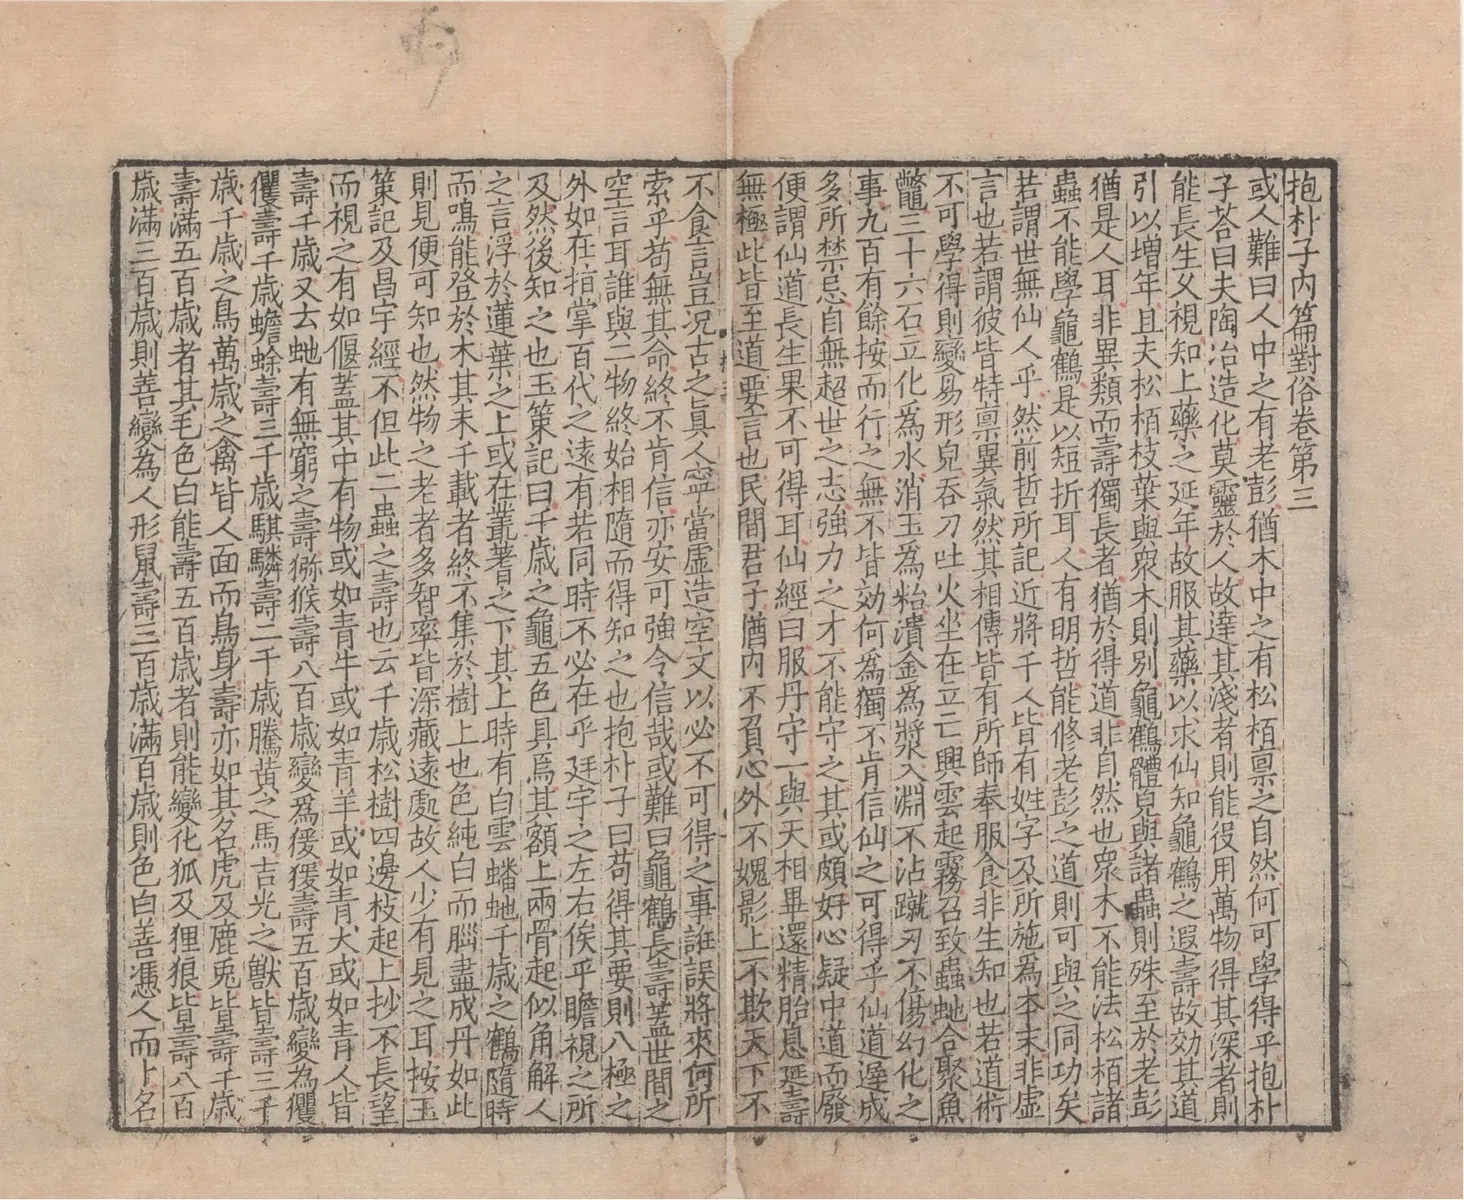 抱朴子內篇對俗卷第三
或人難曰人中之有老彭猶木中之有松栢禀之自然何可學得乎抱朴
子荅曰夫陶冶造化莫靈於人故達其淺者則能役用萬物得其深者則
能長生久視知上藥之延年故服其藥以求仙知龜鶴之遐壽故効其道
引以增年且夫松栢枝葉與衆木則別龜鶴體皃與諸蟲則殊至於老彭
猶是人耳非異類而壽獨長者猶於得道非自然也衆木不能法松栢諸
蟲不能學龜鶴是以短折耳人有明哲能修老彭之道則可與之同功矣
若謂世無仙人乎然前哲所記近將千人皆有姓字及所施爲本末非虛
言也若謂彼皆特禀異氣然其相傳皆有所師奉服食非生知也若道術
不可學得則變易形皃吞刀吐火坐在立亡興雲起霧召致蟲虵合聚魚
鼈三十六石立化爲水消玉爲粭潰金爲漿入淵不沾蹴刃不傷幻化之
事九百有餘按而行之無不皆効何爲獨不肯信仙之可得乎仙道遲成
多所禁忌自無超世之志強力之才不能守之其或頗好心疑中道而廢
便謂仙道長生果不可得耳仙經曰服丹守一與天相畢還精胎息延壽
無極此皆至道要言也民間君子猶內不負心外不媿影上不欺天下不
不食言豈况古之眞人寧當虛造空文以必不可得之事誑誤將來何所
索乎苟無其命終不肯信亦安可強令信哉或難曰龜鶴長壽蓋世間之
空言耳誰與二物終始相隨而得知之也抱朴子曰苟得其要則八極之
外如在指掌百代之遠有若同時不必在乎廷宇之左右俟乎瞻視之所
及然後知之也玉策記曰千歳之龜五色具焉其額上兩骨起似角解人
之言浮於蓮葉之上或在藂蓍之下其上時有白雲蟠虵千歳之鶴隨時
而鳴能登於木其未千載者終不集於樹上也色純白而腦盡成丹如此
則見便可知也然物之老者多智率皆深藏遠處故人少有見之耳按玉
策記及昌宇經不但此二蟲之壽也云千歳松樹四邊枝起上抄不長望
而視之有如偃蓋其中有物或如青牛或如青羊或如青犬或如青人皆
壽千歳又去虵有無窮之壽獼猴壽八百歳變爲猨猨壽五百歳變為玃
玃壽千歳蟾蜍壽三千歳騏驎壽二千歳騰黃之馬吉光之獸皆壽三千
歳千歳之鳥萬歳之禽皆人面而鳥身壽亦如其名虎及鹿兎皆壽千歳
壽滿五百歳者其毛色白能壽五百歳者則能變化狐及狸狼皆壽八百
歳滿三百歳則善變為人形鼠壽三百歳滿百歳則色白善憑人而卜名